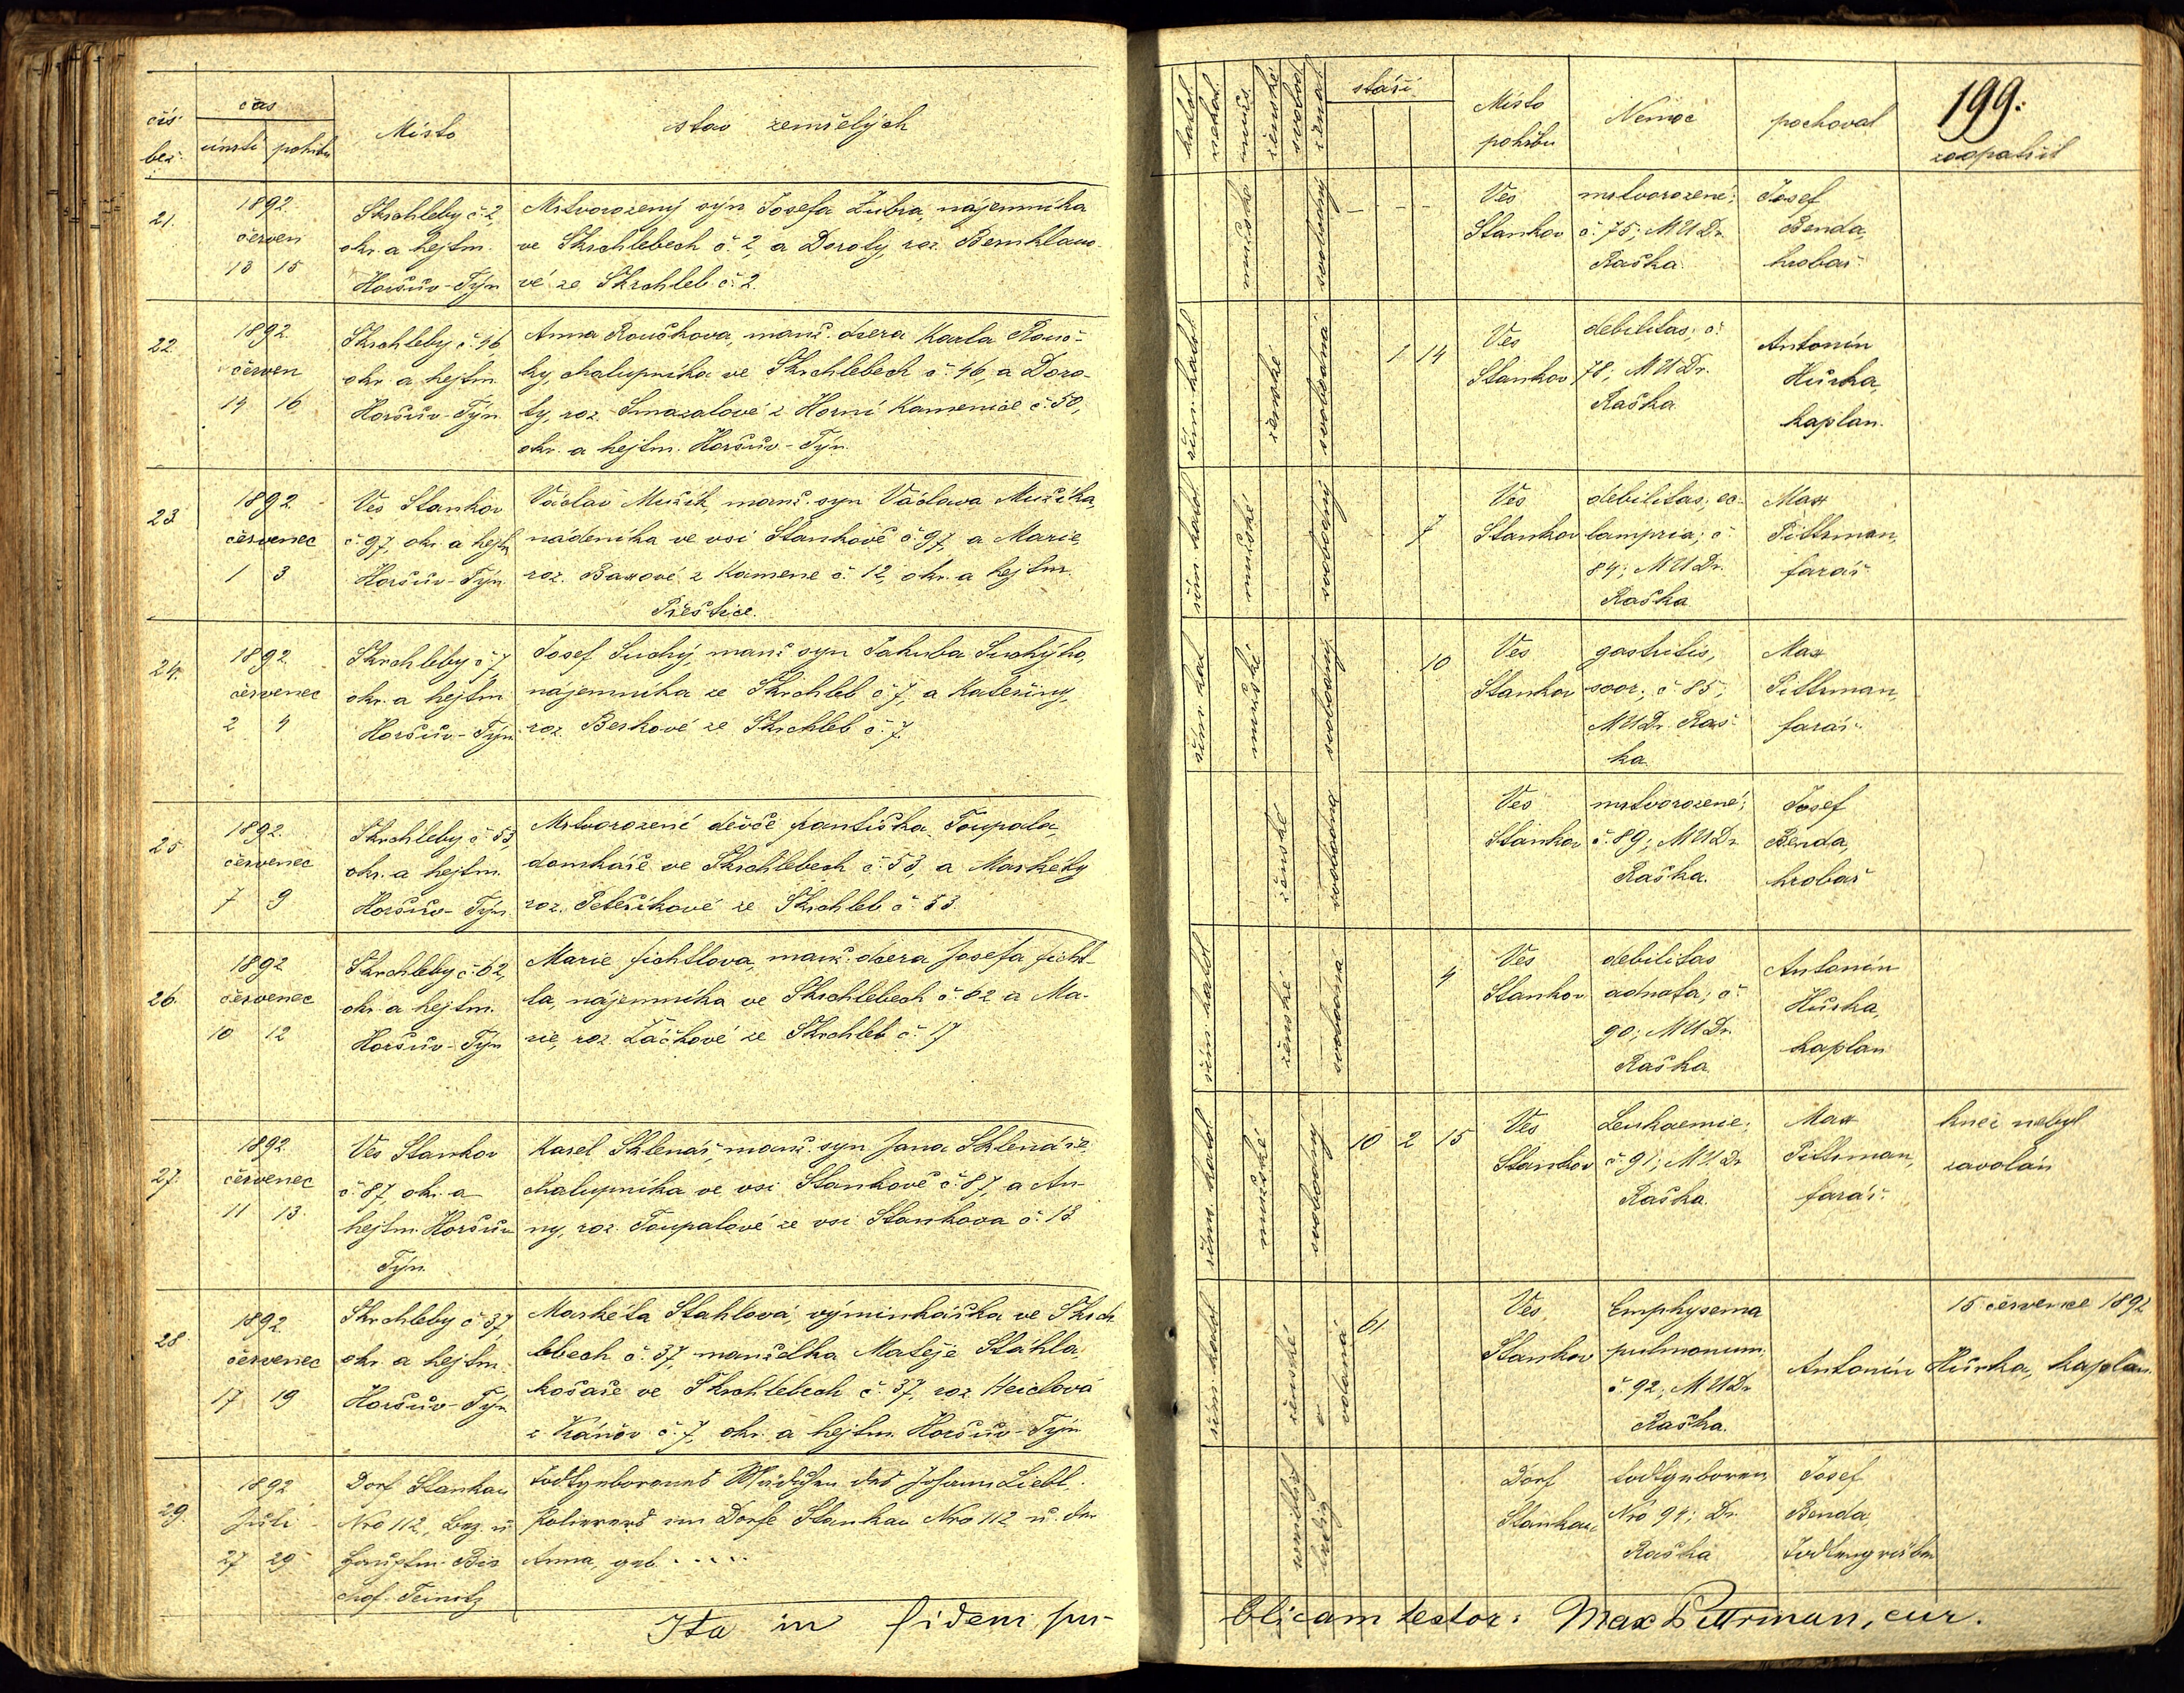 čís. běž. čas úmrtí pohřbu Místo stav zemřelých
21. 1892 červen 13 15
Skrchleby č. 2,
okr. a hejtm.
Horšův-Týn
Mrtvorozený syn Josefa Lubra, nájemníka
ve Skrchlebech č. 2, a Doroty, roz. Bernklauo-
vé ze Skrchleb č. 2.
22. 1892 červen 14 16
Skrchleby č. 46
okr. a hejtm.
Horšův-Týn
Anna Rouškova, manž. dcera Karla Rouš-
ky, chalupníka ve Skrchlebech č. 46, a Doro-
ty, roz. Smazalové z Horní Kamenice č. 50,
okr. a hejtm. Horšův-Týn.
23 1892 červenec 1 3
Ves Stankov
č. 97, okr. a hejtm
Horšův-Týn
Václav Mužík, manž. syn Václava Mužíka,
nádeníka ve vsi Stankově č. 97, a Marie,
roz. Baxové z Kamene č. 12, okr. a hejtm.
Přeštice.
24. 1892 červenec 2 4
Skrchleby č. 7,
okr. a hejtm
Horšův-Týn
Josef Suchý, manž. syn Jakuba Suchýho,
nájemníka ze Skrchleb č. 7, a Kateřiny,
roz. Beskové ze Skrchleb č. 7.
25 1892. červenec 7 9
Skrchleby č. 53,
okr. a hejtm.
Horšův-Týn
Mrtvorozené děvče Františka Toupala,
domkáře ve Skrchlebech č. 53, a Markéty
roz. Peteříkové ze Skrchleb č. 53.
26. 1892 červenec 10 12
Skrchleby č. 62,
okr. a hejtm.
Horšův-Týn
Marie Fichtlova, manž. dcera Josefa Ficht-
la, nájemníka ve Skrchlebech č. 62 a Ma-
rie, roz. Žáčkové ze Skrchleb č. 17
27. 1892 červenec 11 13.
Ves Stankov
č. 87, okr. a
hejtm. Horšův
Týn.
Karel Sklenář, manž. syn Jana Sklenáře,
chalupníka ve vsi Stankově č. 87, a An-
ny, roz. Toupalové ze vsi Stankova č. 13
28 1892 červenec 17 19
Skrchleby č. 37,
okr. a hejtm.
Horšův-Týn
Markéta Stahlová, výminkářka ve Skrch
lebech č. 37, manželka Matěje Stáhla,
košaře ve Skrchlebech č. 37, roz. Heiclová
z Kánov č. 7, okr. a hejtm. Horšův-Týn
29. 1892 Juli 27 29
Dorf Stankau
Nro 112, Bez. u.
Hauptm. Bis
chof-Teinitz
Todtgeborenes Mädchen des Johann Liebl,
Polierers im Dorfe Stankau Nro 112 u. der
Anna, geb. . . . .
Ita in fidem pu-
katol. nekat. mužs. ženské svobod. ženat. stáří Místo pohřbu Nemoc pochoval 199. zaopatřil
mužské svobodný - - -
Ves
Stankov
mrtvorozené;
č. 75; MUDr.
Raška
Josef
Benda,
hrobař
řím. katol. ženské svobodná 1 14
Ves
Stankov
debilitas; č.
78; MUDr.
Raška
Antonín
Hůrka,
kaplan.
řím. katol. mužské svobodný 7
Ves
Stankov
debilitas, ec-
lampria; č.
84; MUDr.
Raška
Max
Pittrman,
farář
řím. kat mužské svobodný 10
Ves
Stankov
gastritis,
soor; č. 85;
MUDr. Raš-
ka.
Max
Pittrman,
farář.
ženské svobodna
Ves
Stankov
mrtvorozené;
č. 89; MUDr.
Raška.
Josef
Benda,
hrobař
řím. katol. ženské svobodna 4
Ves
Stankov
debilitas
adnata; č.
90; MUDr.
Raška.
Antonín
Hůrka,
kaplan
řím. katol mužské svobodný 10 2 15
Ves
Stankov
Leukaemie;
č. 91; MUDr.
Raška.
Max
Pittrman,
farář.
kněz nebyl
zavolán
řím. katol ženské vdaná 61
Ves
Stankov
Emphysema
pulmonum;
č. 92; MUDr.
Raška.
15 července 1892
Antonín Hůrka, kaplan.
weiblich ledig
Dorf
Stankau
todtgeboren
Nro 94; Dr.
Raška
Josef
Benda,
Todtengräber
blicam testor: Max Pittrman, cur.